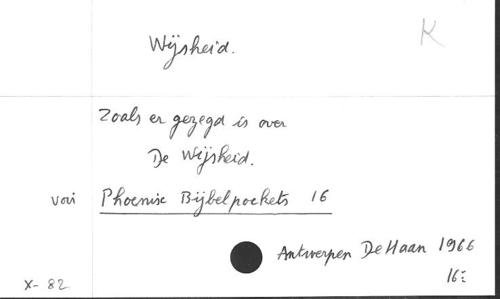 K
Wijsheid.
Zoals er gezegd is over
De Wijsheid.
voir Phoenix Bijbelpockets 16
Antwerpen De Haan 1966
16:
X- 82